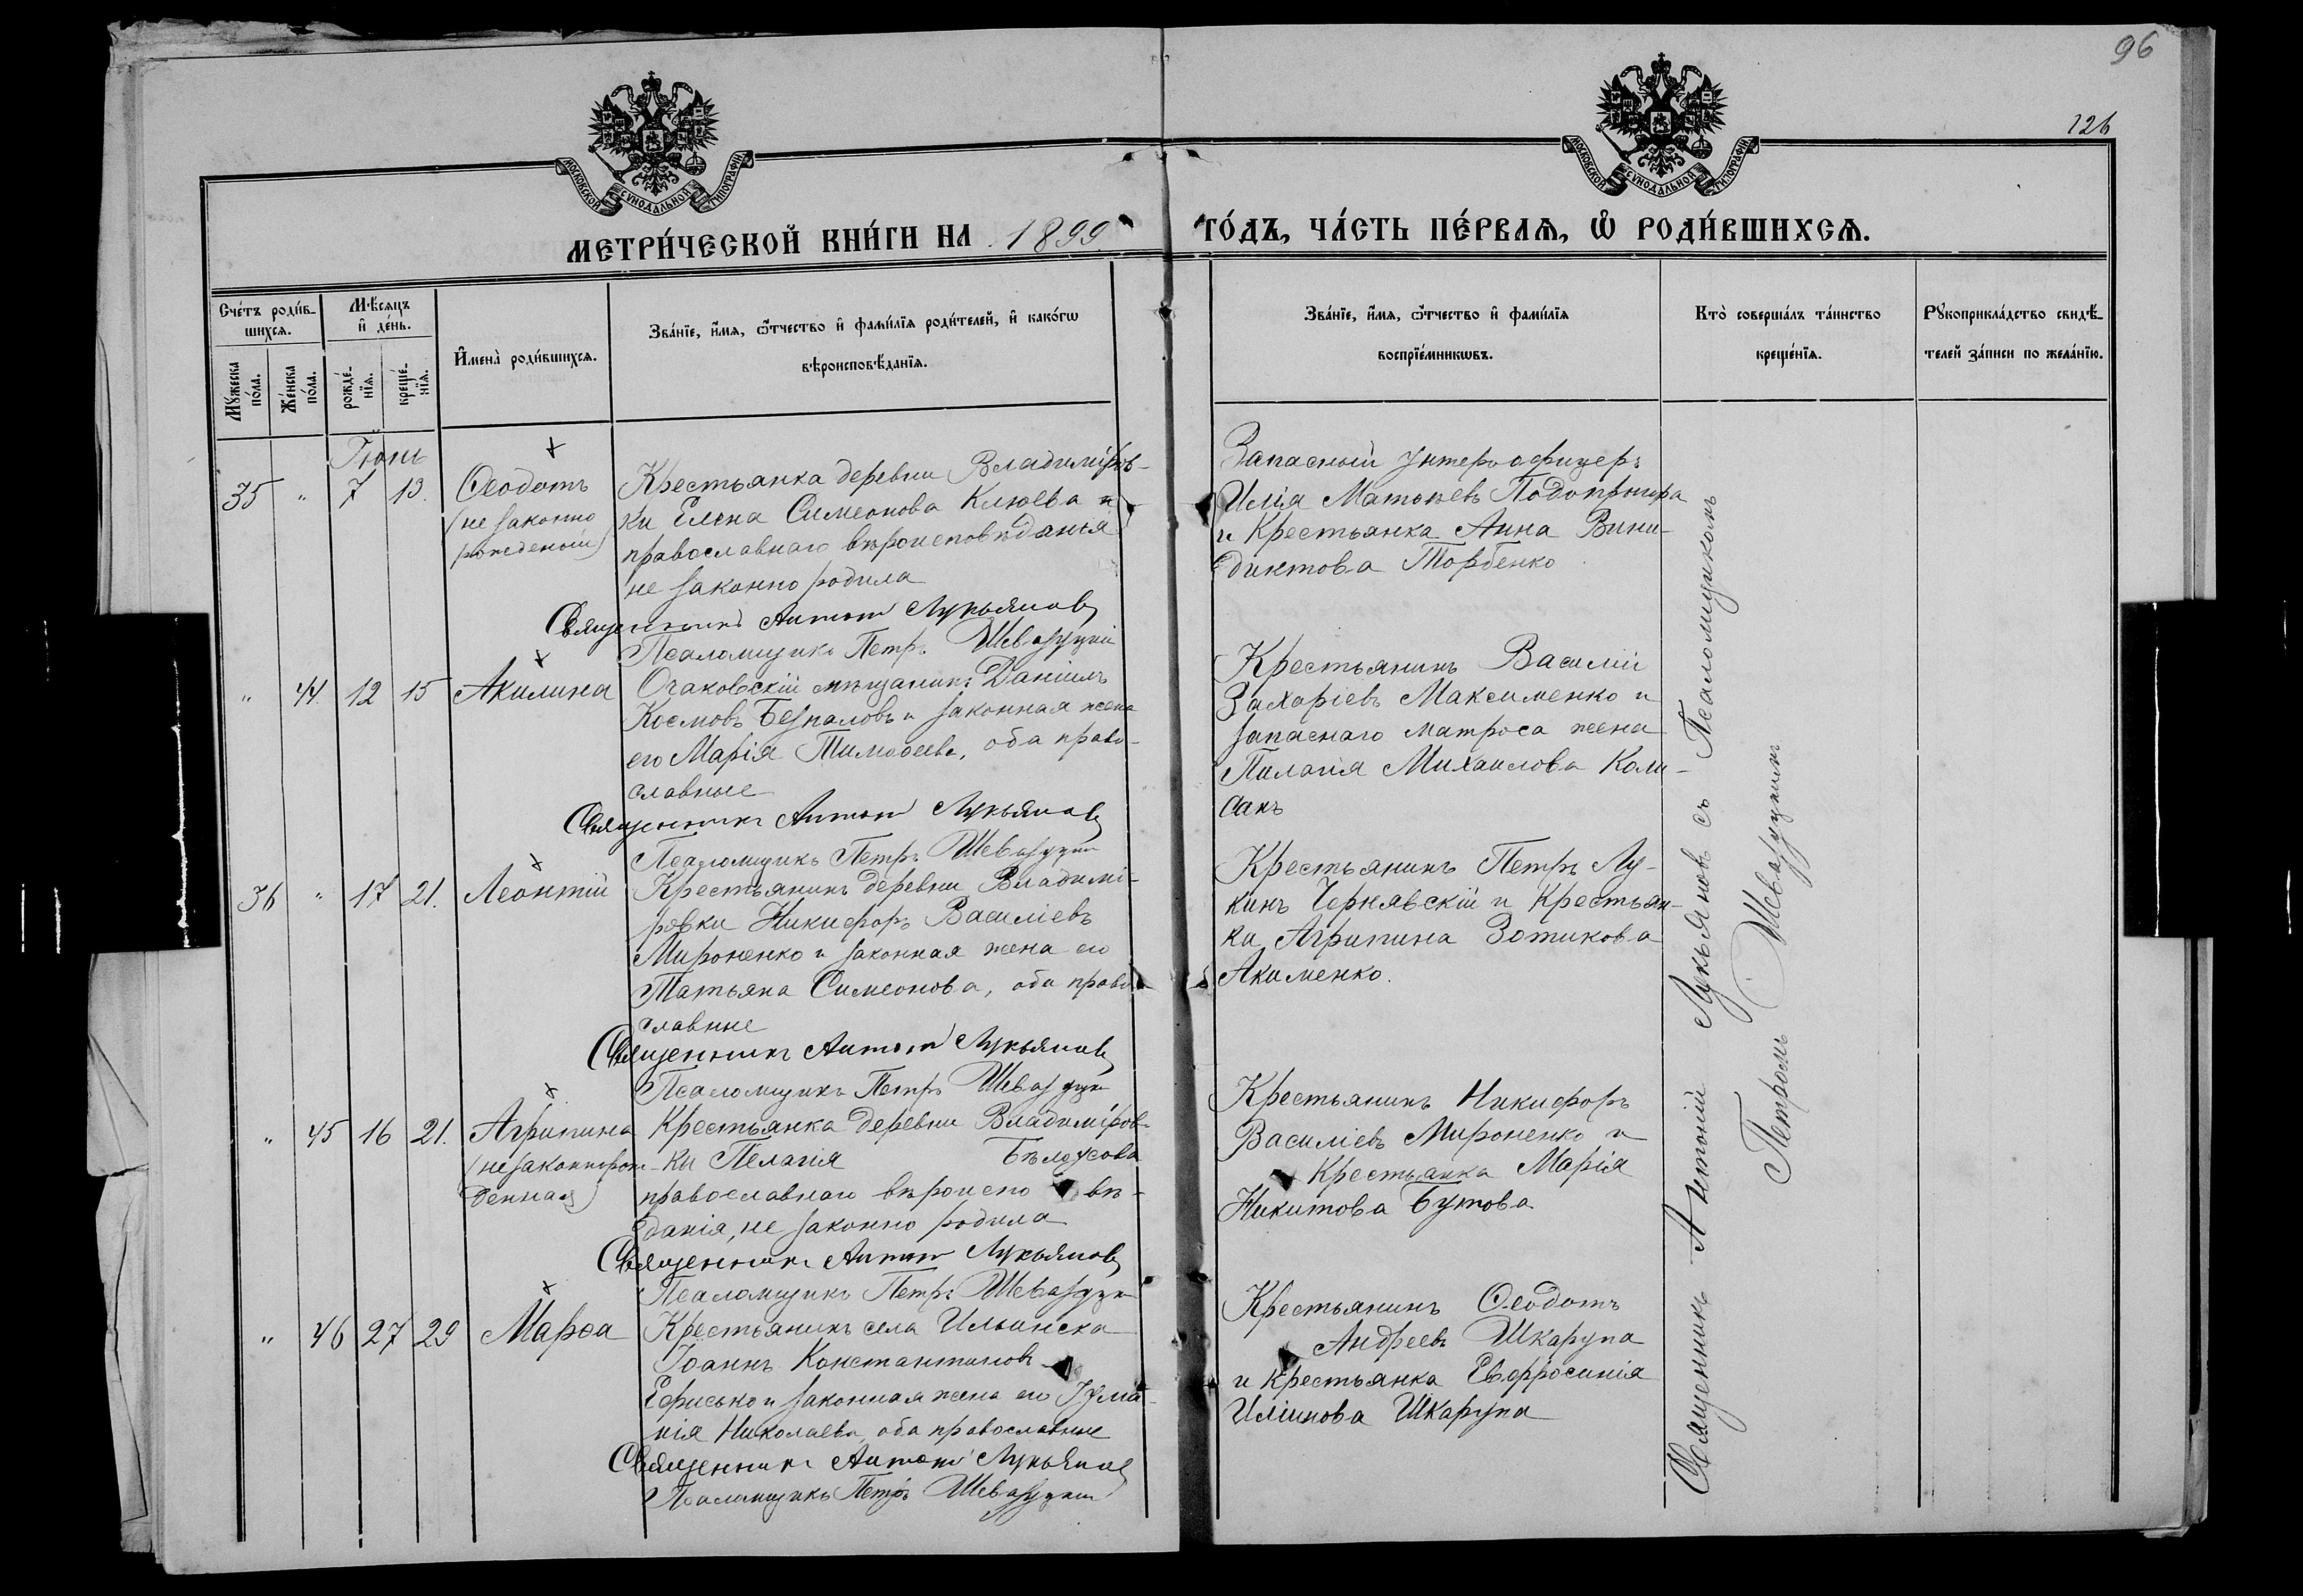 96
126
МОСКОВСКОЙ СѴНОДАЛЬНОЙ ТИПОГРАФІИ
МОСКОВСКОЙ СѴНОДАЛЬНОЙ ТИПОГРАФІИ
МЕТРИ́ЧЕСКОЙ КНИ́ГИ НА 1899 ГО́ДЪ, ЧА́СТЬ ПЕ́РВАѦ, Ѽ РОДИ́ВШИХСѦ.
Сче́тъ роди́в-
шихсѧ.
Мꙋ́жеска
по́ла.
Же́нска
по́ла.
Мѣ́сяцъ
и҆ де́нь.
рожде́-
нїѧ.
креще́-
нїѧ.
И҆мена̀ роди́вшихсѧ.
Зва́нїе, и҆́мѧ, ѻ҆́тчество и҆ фами́лїѧ роди́телей, и҆ како́гѡ
вѣроисповѣ́данїѧ.
Зва́нїе, и҆́мѧ, ѻ҆́тчество и҆ фами́лїѧ
воспрїе́мникѡвъ.
Кто̀ соверша́лъ та́инство
креще́нїѧ.
Рꙋкоприкла́дство свидѣ́-
телей за́писи по жела́нїю.
Іюнь
35 " 7 13.
Ѳеодотъ
(не законно
рожденый)
Крестьянка деревни Владимірѣв-
ки Елена Симеонова Клюева и
православнаго вѣроисповѣданья
не законно родила
Священникъ Антоній Лукьяновъ
Псаломщикъ Петръ Шевазуцкій
Запасный унтеръ офицеръ
Илія Матѳѣевъ Подопригора
и Крестьянка Анна Вини-
диктова Торбенко
" 44. 12 15
Акилина
Очаковскій мѣщанинъ Даніилъ
Космовъ Безпаловъ и законная жена
его Марія Тимоѳеева, оба право-
славные
Священникъ Антоній Лукьяновъ
Псаломщикъ Петръ Шевазуцкій
Крестьянинъ Василій
Захаріевъ Максименко и
запаснаго матроса жена
Пилагія Михаилова Коли-
санъ
36 " 17 21.
Леонтій
Крестьянинъ деревни Владимі-
ровки Никифоръ Василіевъ
Мироненко и законная жена его
Татьяна Симеонова, оба право
славные
Священникъ Антоній Лукьяновъ
Псаломщикъ Петръ Шевазуцкій
Крестьянинъ Петръ Лу-
кинъ Чернявскій и Крестьян-
ка Агрипина Зотикова
Акименко.
" 45 16 21.
Агрипина
(незаконнорож-
денная)
Крестьянка деревни Владиміров-
ки Пелагія Бѣлоусова
православнаго вѣроиспо вѣ-
данія, не законно родила
Священникъ Антоній Лукьяновъ
Псаломщикъ Петръ Шевазуцкій
Крестьянинъ Никифоръ
Василіевъ Мироненко и
Крестьянка Марія
Никитова Бутова
" 46 27 29
Марѳа
Крестьянинъ села Ильинска
Іоаннъ Константиновъ
Ефисько и законная жена его Іулiа-
нія Николаева, оба православные
Священникъ Антоній Лукьяновъ
Псаломщикъ Петръ Шевазуцкій
Крестьянинъ Ѳеодотъ
Андреевъ Шкарупа
и крестьянка Евфросинія
Иліинова Шкарупа
Священникъ Антоній Лукьяновъ съ Псаломщикомъ
Петромъ Шевазуцкимъ